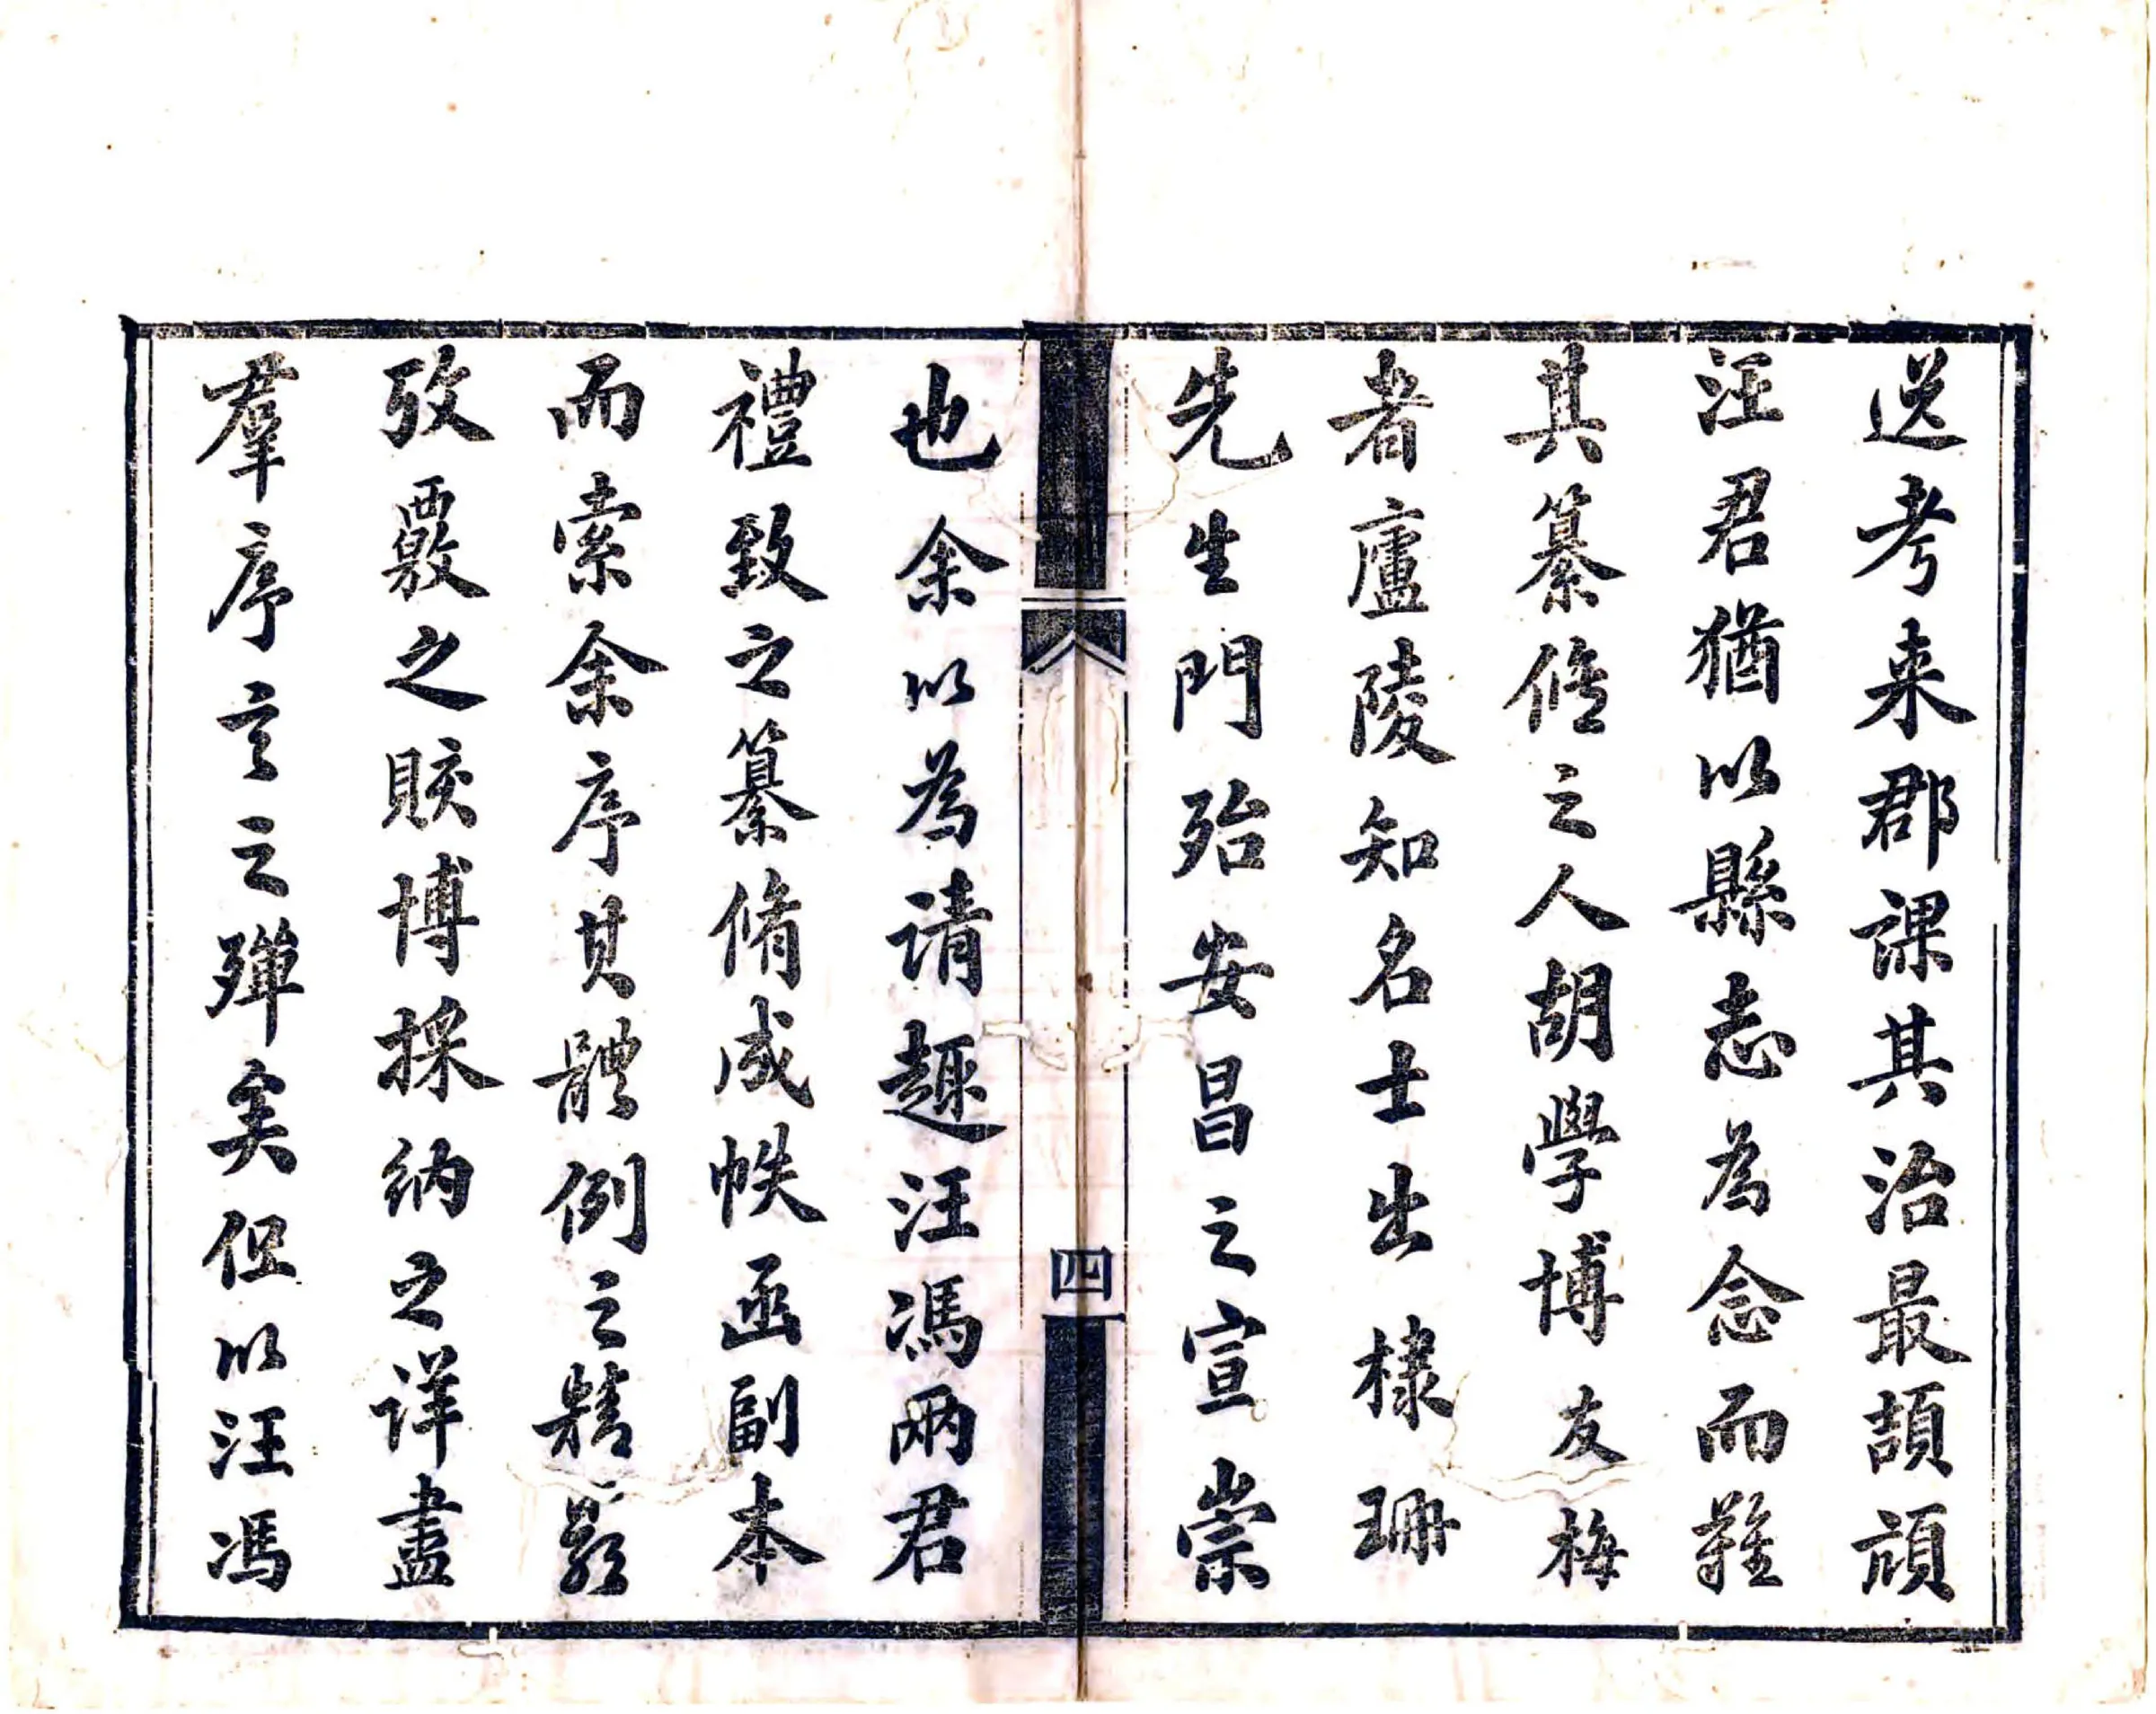 送考来郡課其治最頡頏
汪君猶以縣志為念而難
其纂脩之人胡學博友梅
者廬陵知名士出棣珊
先生門殆安昌之宣崇
也余以為請趣汪馮兩君
禮致之纂脩成帙函副本
而索余序其體例之精嚴
攷覈之賅博採納之详盡
羣序言之殫矣但以汪馮
四